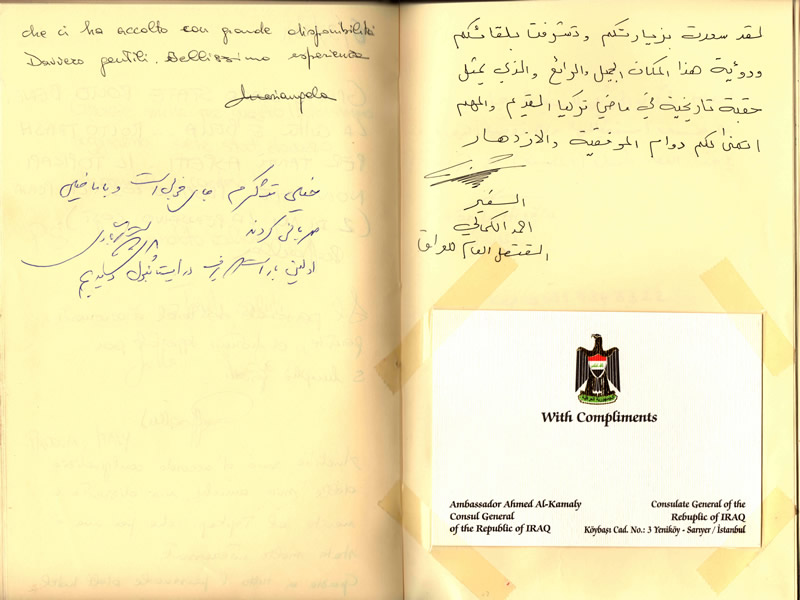 che ci ha accolto con grande disponibilità
Davvero gentili. Bellissima esperienza
Mariangela
خیلی متشکرم جای خوبی است و بابا خیلی
مهربانی کردند
اولین بار است در استانبول
لقد سعدت بزيارتكم وتشرفت بلقائكم
ورؤية هذا المكان الجميل والرائع والذي يمثل
حقبة تاريخية في ماضي تركيا القديم والمهم
اتمنى لكم دوام الموفقية والازدهار
السفير
احمد الكمالي
القنصل العام للعراق
With Compliments
Ambassador Ahmed Al-Kamaly
Consul General
of the Republic of IRAQ
Consulate General of the
Rebuplic of IRAQ
Köybaşı Cad. No.: 3 Yeniköy - Sarıyer / İstanbul